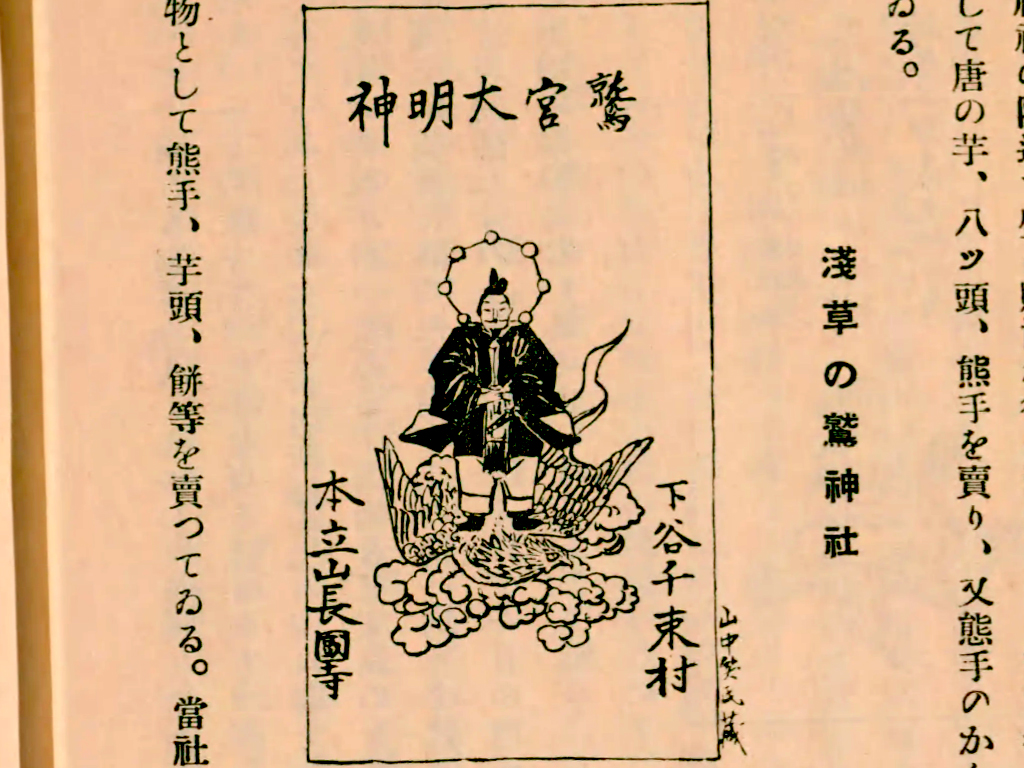 して唐の芋、八ッ頭、熊手を賣り、又熊手のか
ゐる。
淺草の鷲神社
鷲宮大明神
下谷千束村
本立山長國寺
山中笑氏藏
物として熊手、芋頭、餅等を賣つてゐる。當社